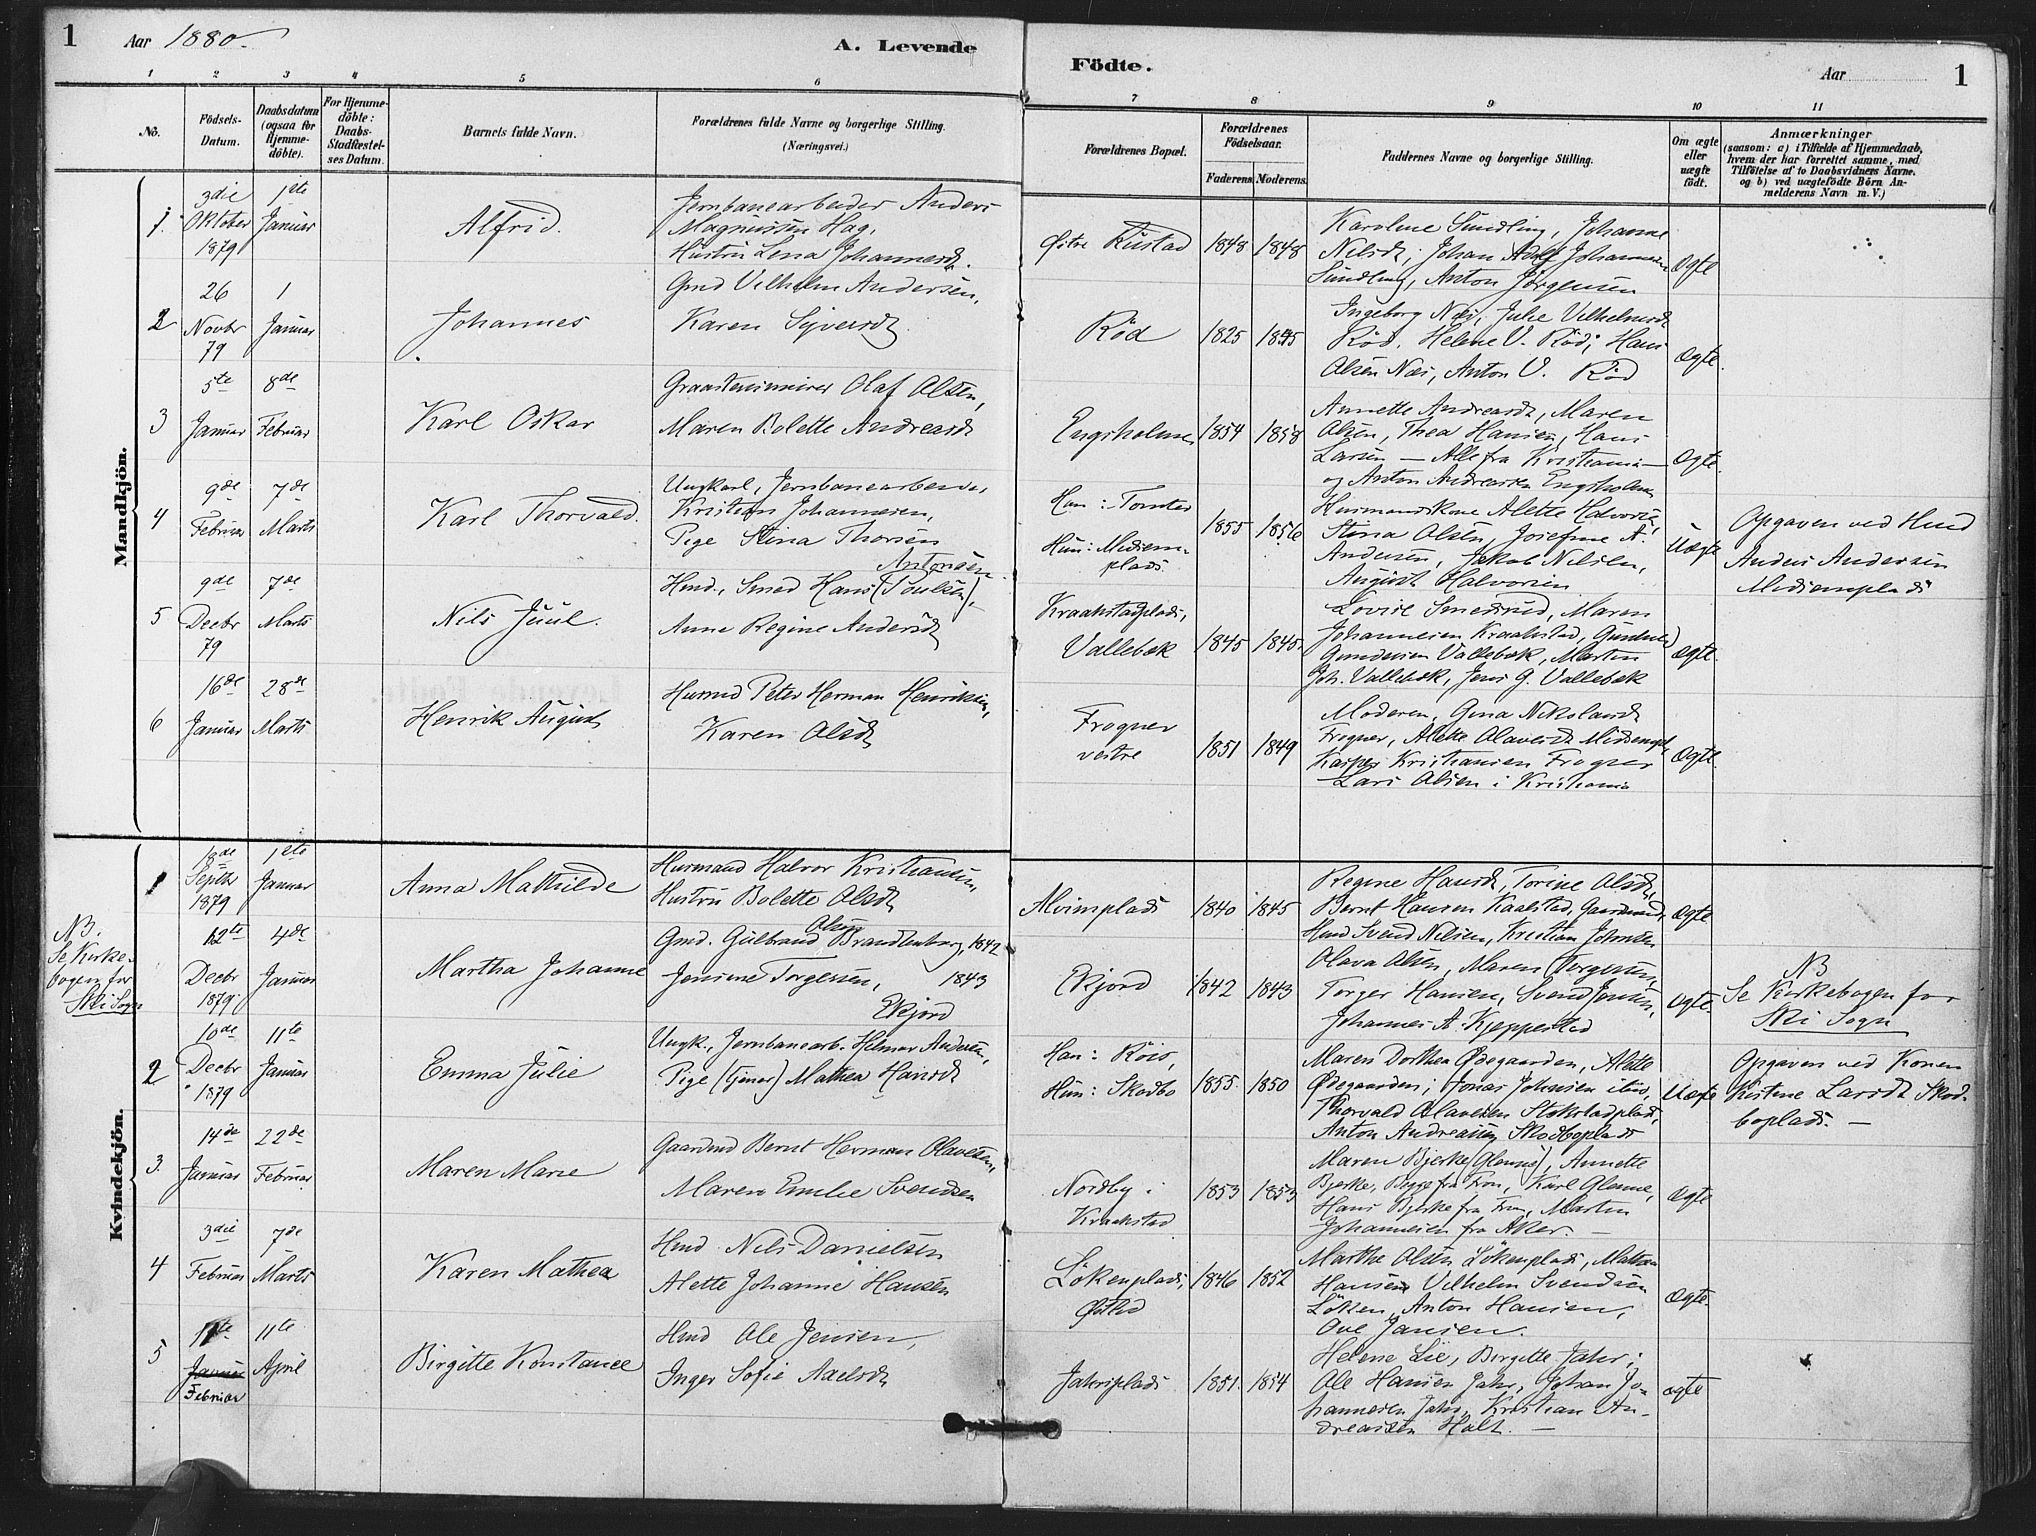 1 Aar 1880. A. Levende Födte. Aar 1
1 2 3 4 5 6 7 8 9 10 11
No.
Födsels-Datum.
Daabsdatum (ogsaa for Hjemmedöbte).
For Hjemmedöbte: Daabs-Stadfæstelses Datum.
Barnets fulde Navn.
Forældrenes fulde Navne og borgerlige Stilling.
(Næringsvei.)
Forældrenes Bopæl.
Forældrenes Födselsaar.
Faderens Moderens.
Faddernes Navne og borgerlige Stilling.
Om ægte eller uægte födt.
Anmærkninger
(saasom: a) i Tilfælde af Hjemmedaab,
hvem der har forrettet samme, med
Tilföielse af to Daabsvidners Navne.
og b) ved uægtefödte Börn Anmelderens Navn m. V.)
Mandkjön.
1.
3die Oktober 1879
1ste Januar
Alfrid.
Jernbanearbeider Anders
Magnussen Hag,
Hustru Lena Johannesdt.
Østre Rustad
1848 1848
Karoline Sundling, Johanne
Nilsdt; Johan Adolf Johannesen
Sundling, Anton Jörgensen
Ægte
2
26 Novbr 79
1 Januar
Johannes
Gmd Vilhelm Andersen,
Karen Syversdt.
Röd
1825 1845
Ingeborg Næs, Julie Vilhelmsdt
Röd. Helene V. Röd; Hans
Olsen Næs, Anton V. Röd
Ægte.
3
5te Januar
8de Februar
Karl Oskar
Graastensminerer Olaf Olsen,
Maren Bolette Andreasdt
Engsholmen
1854 1858
Annette Andreasdt, Maren
Olsen, Thea Hansen, Hans
Larsen — Alle fra Kristiania —
og Anton Andreasen Engsholmen
Ægte.
4
9de Februar
7de Marts
Karl Thorvald.
Ungkarl, Jernbanearbeider
Kristian Johannesen,
Pige Stina Thorsen
Han: Tomter
Hun: Midsem-
plads.
1855 1856
Husmandskone Alette Halvorsen,
Stina Olsen, Josefine A.
Andersen, Jakob Nilsen,
August Halvorsen
Uægte
Opgaven ved Hmd
Anders Andersen
Midsemplads
5
9de Decbr 79
7de Marts
Nils Juul.
Antonsen.
Hmd., Smed Hans (Poulsen),
Anne Regine Andersdt
Kraakstadplads,
Vallebæk
1845 1845.
Lovise Smedsrud, Maren
Johannesen Kraakstad, Gunhild
Gundersen Vallebæk, Martin
Joh. Vallebæk, Jens G. Vallebæk
Ægte.
6
16de Januar
28de Marts
Henrik August
Husmd Peter Herman Henriksen,
Karen Olsdt
Frogner
vestre
1851 1849
Moderen, Gina Nikolaisdt
Frogner, Alette Olavesdt Midsempl,
Kasper Kristiansen Frogner
Lars Olsen i Kristiania
Ægte.
Kvindekjön.
1
18de Septbr 1879
1ste Januar
Anna Mathilde
Husmand Halvor Kristiansen,
Hustru Bolette Olsdt
Alvimplads
1840 1845
Regine Hansdt, Torine Olsdt,
Bernt Hansen Kaalstad, Gaardmd,
Hmd Svend Nilsen, Kristian Johnsen
Ægte
NB.
Se Kirke-
bogen for
Ski Sogn
12te Decbr 1879.
4de Januar
Martha Johanne
Olsen
Gmd. Gulbrand Brandtenborg, 1842
Jensine Torgersen, 1843
Ekjord
Ekjord
1842 1843
Olava Olsen, Maren Torgersen,
Torger Hansen, Svend Jensen,
Johannes A. Kjeppestad
Ægte.
NB
Se Kirkebogen for
Ski Sogn
2
10de Decbr 1879
11te Januar
Emma Julie
Ungk., Jernbanearb. Helmer Andersen,
Pige (tjener) Mathea Hansdt
Han: Röis,
Hun: Skodbo
1855. 1850
Maren Dorthea Ødegaarden, Alette
Ødegaarden; Jonas Johnsen ibid,
Thorvald Olavesen Stokstadplads,
Anton Andreassen Skodboplads
Uægte
Opgaven ved Konen
Kistine Larsdt Skod-
boplads. —
3.
14de Januar
22de Februar
Maren Marie
Gaardmd Bernt Herman Olavesen,
Maren Emilie Svendsen
Nordby i
Kraakstad
1853 1853
Maren Bjerke (Glenne), Annette
Bjerke, Begge fra Fron, Karl Glenne,
Hans Bjerke fra Fron, Martin
Johannesen fra Aker. —
Ægte
4
3die Februar
7de Marts
Karen Mathea
Hmd Nils Danielsen
Alette Johanne Hansen
Lökenplads,
Østbo
1846 1852
Marthe Olsen Lökenplads, Mathea
Hansen Vilhelm Svendsen
Löken, Anton Hansen,
Ove Jansen.
Ægte.
5
11te Januar Februar
11te April
Birgitte Konstance
Hmd Ole Jensen,
Inger Sofie Naelsdt
Jahrsplads
1851. 1854
Helene Lie, Birgitte Jahr;
Ole Hansen Jahr, Johan Jo-
hannesen Jahr, Kristian An-
dreassen Holt. —
ægte